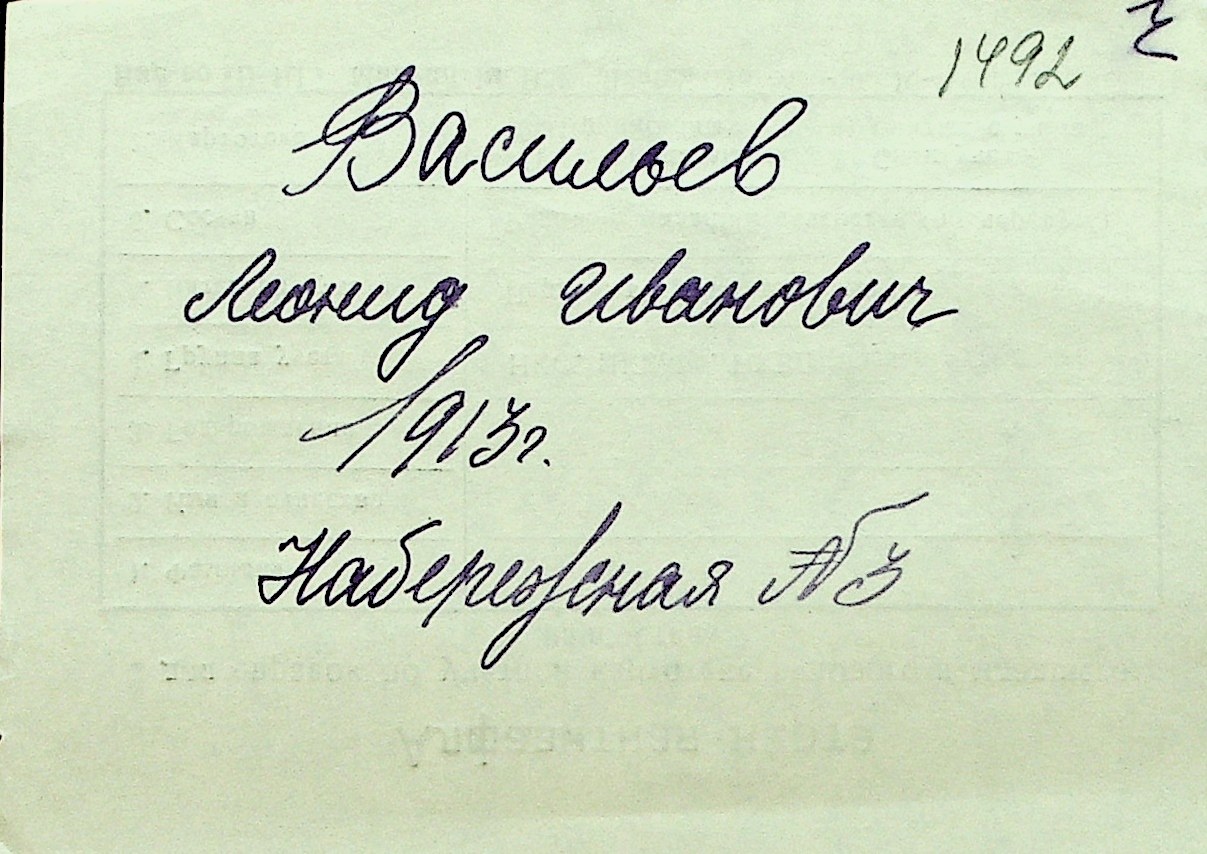 1492
Васильев
Леонид Иванович
1913г.
Набережная №3